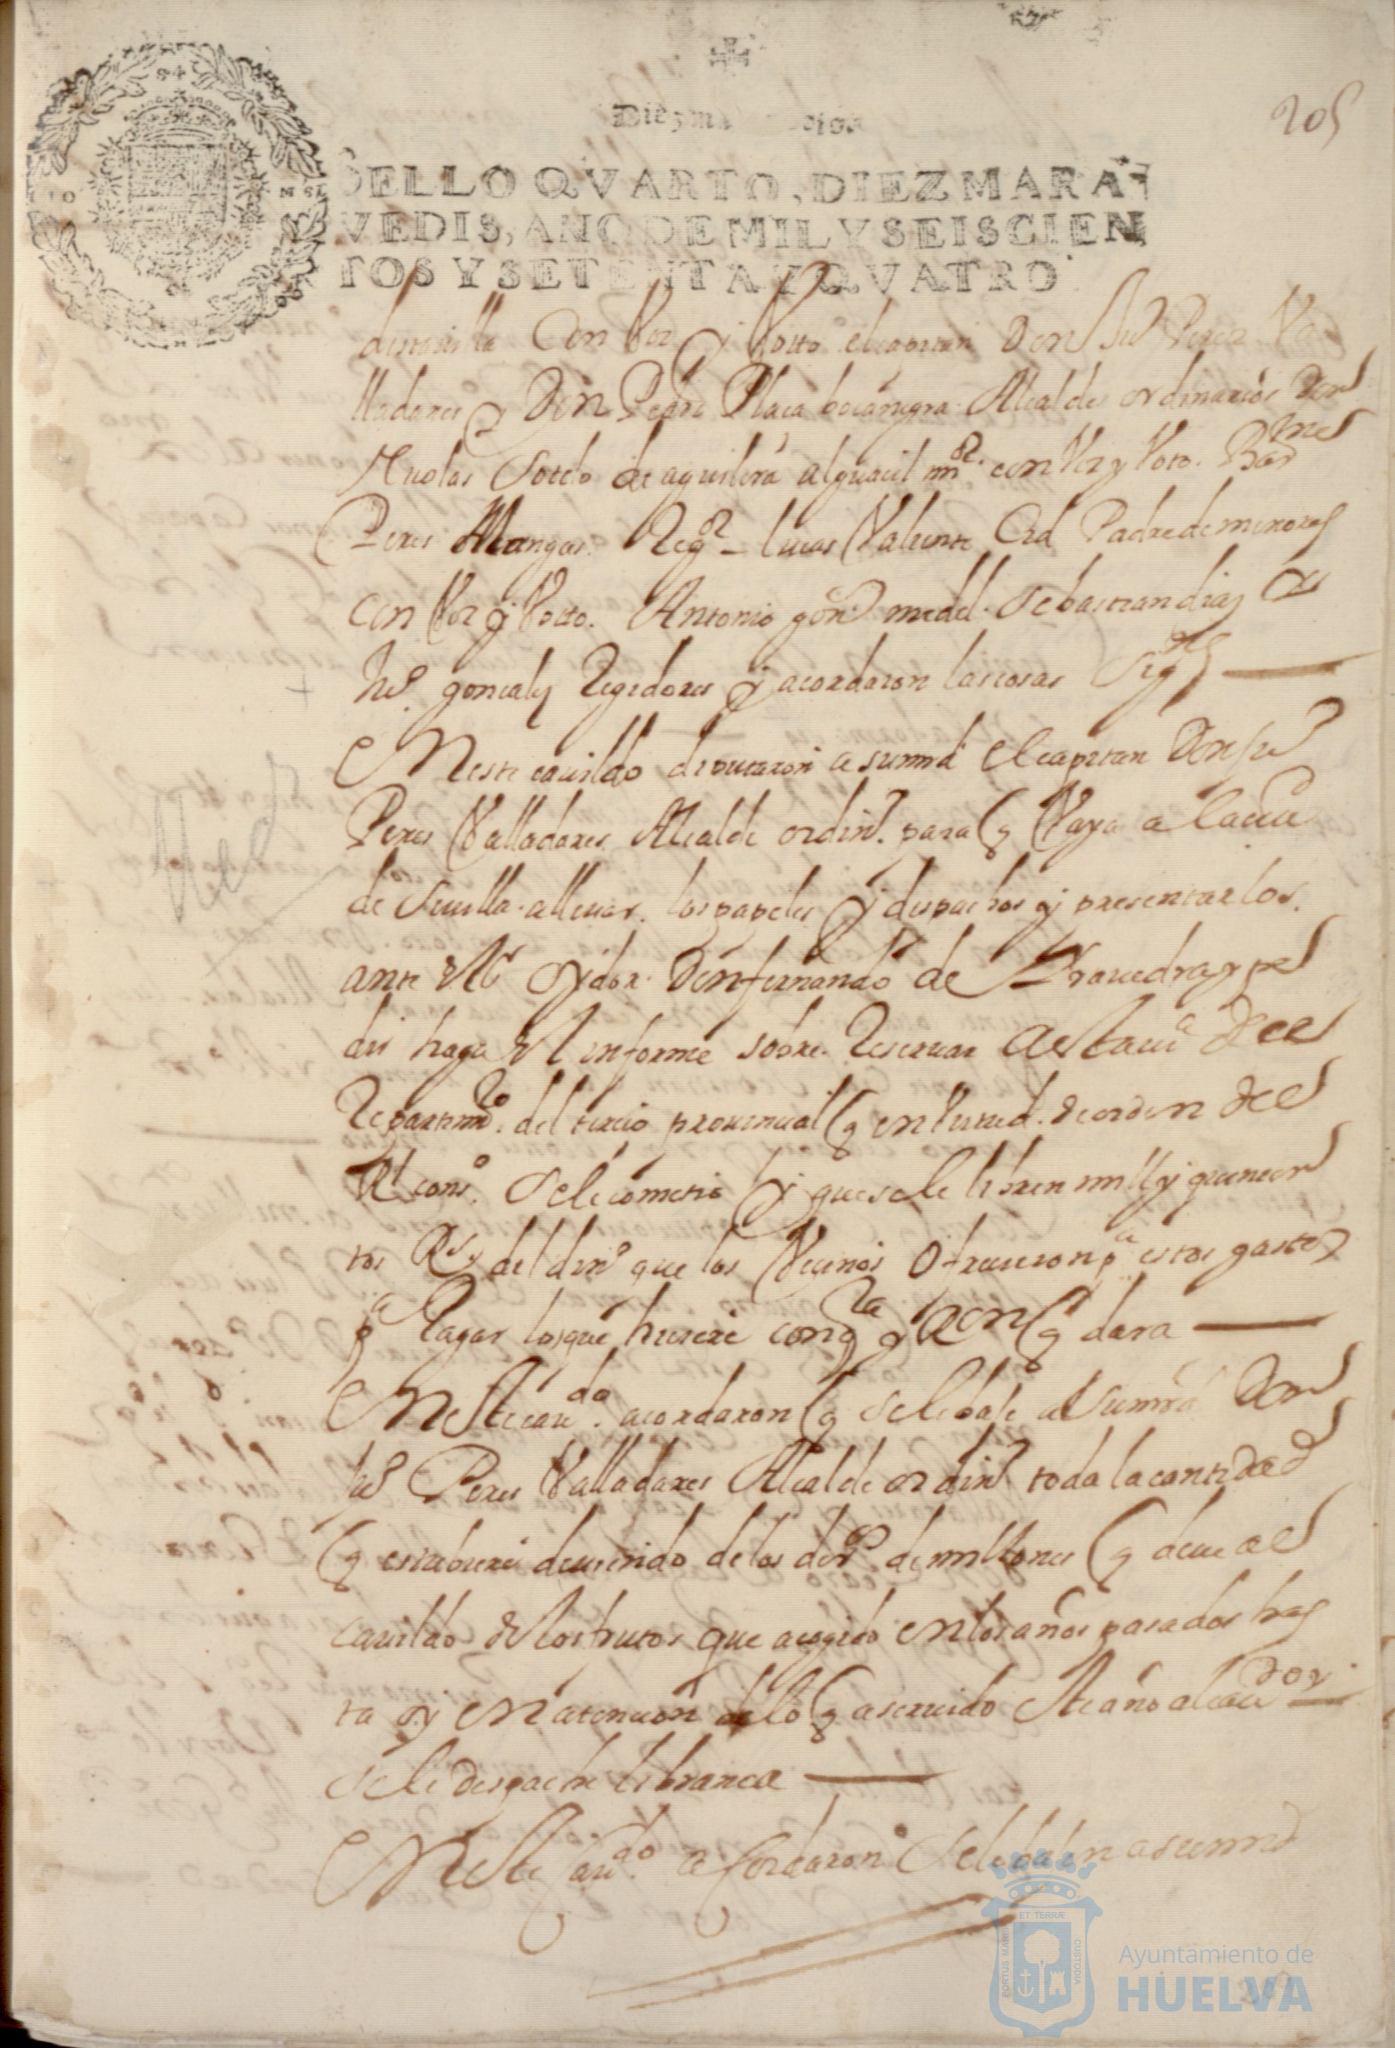 205
Diez mara
SELLO QVARTO, DIEZ MARA
VEDIS, AÑO DE MIL Y SEISCIEN
TOS Y SETENTA Y QVATRO.
desta villa Con Voz y Votto el capitan Don Juº Perez Va
lladares y Don Pedro Plaça bocanegra Alcaldes ordinarios Don
Nicolas Sotelo de aguilera alguacil mºr con Voz y Voto. Barme
Peres Mangas. Regor Lucas Valiente Cid Padre de menores
con Voz y Votto. Antonio gonz medel. Sebastian diaz
Juº. goncalez Regidores y acordaron las cosas sigtes
En este cavildo diputaron a su md el capitan Don juº
Peres Valladares Alcalde ordinº. para q Vaya a la ciud
de Sevilla a llevar los papeles y despachos y presentarlos
ante el sr oydor Don fernando de
dir haga el informe sobre Reservar a esta va de el
Repartimto. del tercio provincial q en Virtud de orden de el
Rl consº. Se le cometio y que se le libren mill y quinien
tos Rs del dinº que los Vecinos ofrecieron pa estos gastos
pa Pagar los que huviere con qta y Racon q dara
En este cavdo. acordaron q se le baje a su md Don
juº Peres Valladares Alcalde ordinº toda la cantidad
q estubiere deviendo de los derºs de millones q deve a el
cavildo de los frutos que a cogido en los años pasados has
ta oy En atencion de lo q a servido este año al cavdo y
se le despache libranca
En este cavdo. acordaron Se le den a su md
ET TERRÆ
PORTUS MARIS
CUSTODIA
Ayuntamiento de
HUELVA